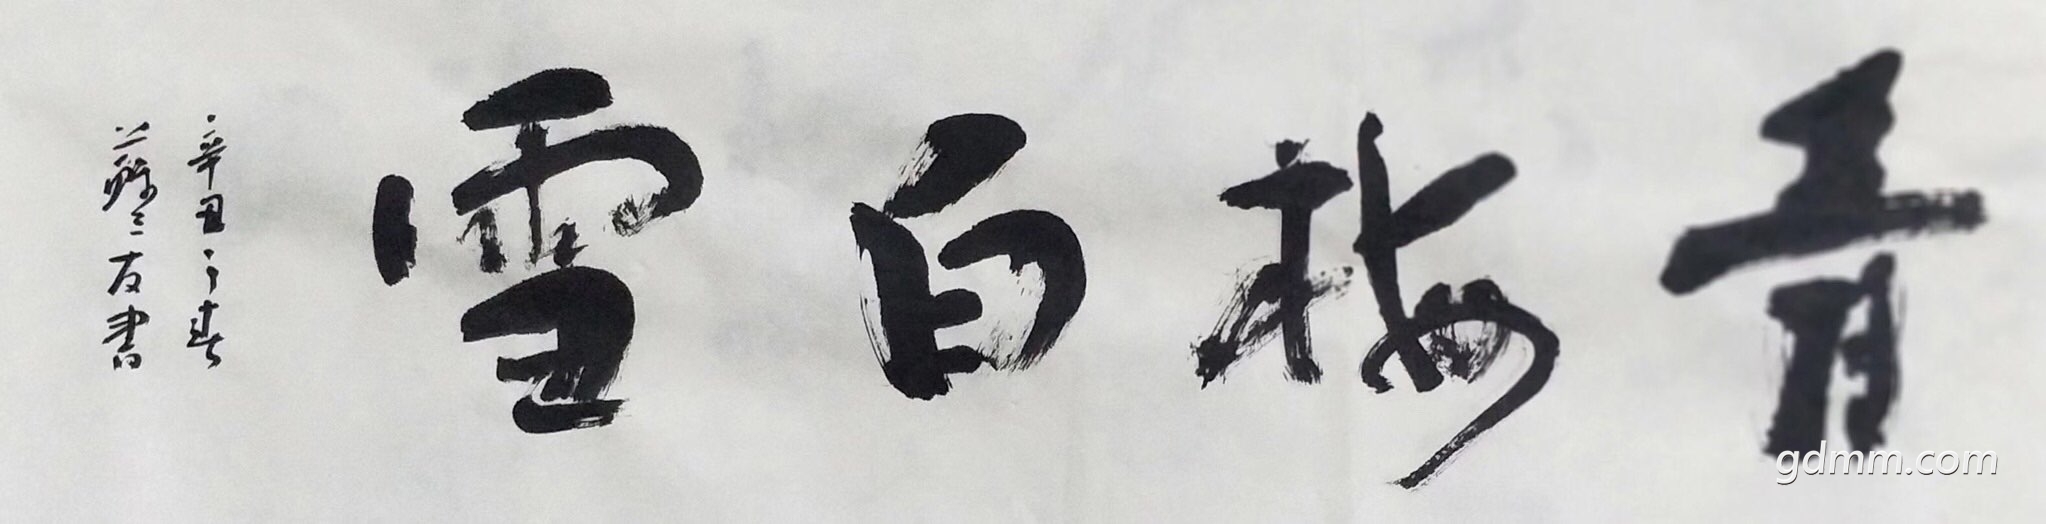 青梅白雪
辛丑之春
苏三友书
gdmm.com